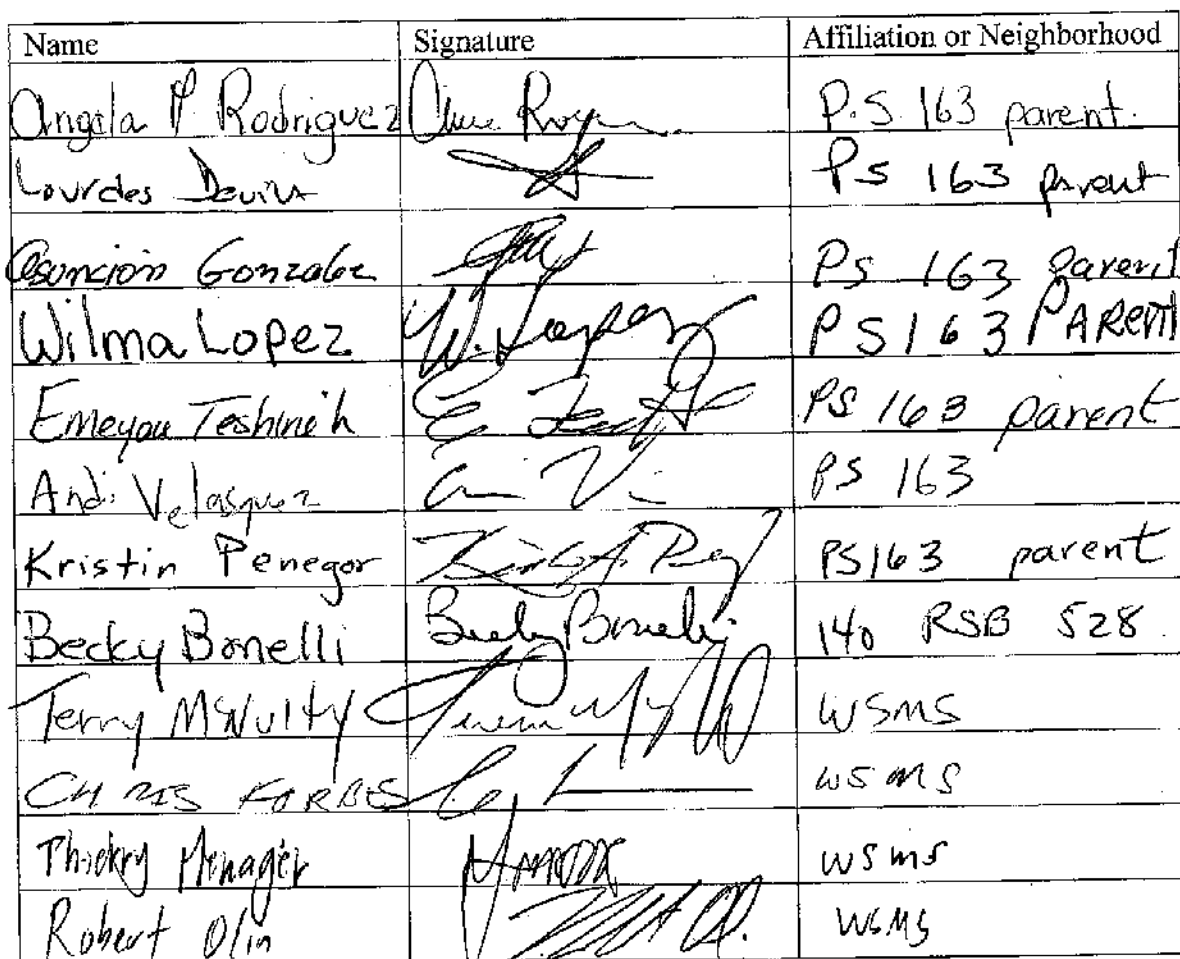 Name Signature Affiliation or Neighborhood
Angela P Rodriguez P.S. 163 parent.
Lourdes PS 163 parent
Asuncion Gonzalez PS 163 parent
Wilma Lopez W. Lopez PS 163 PARENT
Emeyou PS 163 parent
Andi Velasquez PS 163
Kristin Penegor PS163 parent
Becky Bonelli Becky Bonelli 140 RSB 528
Terry McNulty WSMS
CHRIS FORBES WSMS
Thierry Menager WSMS
Robert Olin WSMS